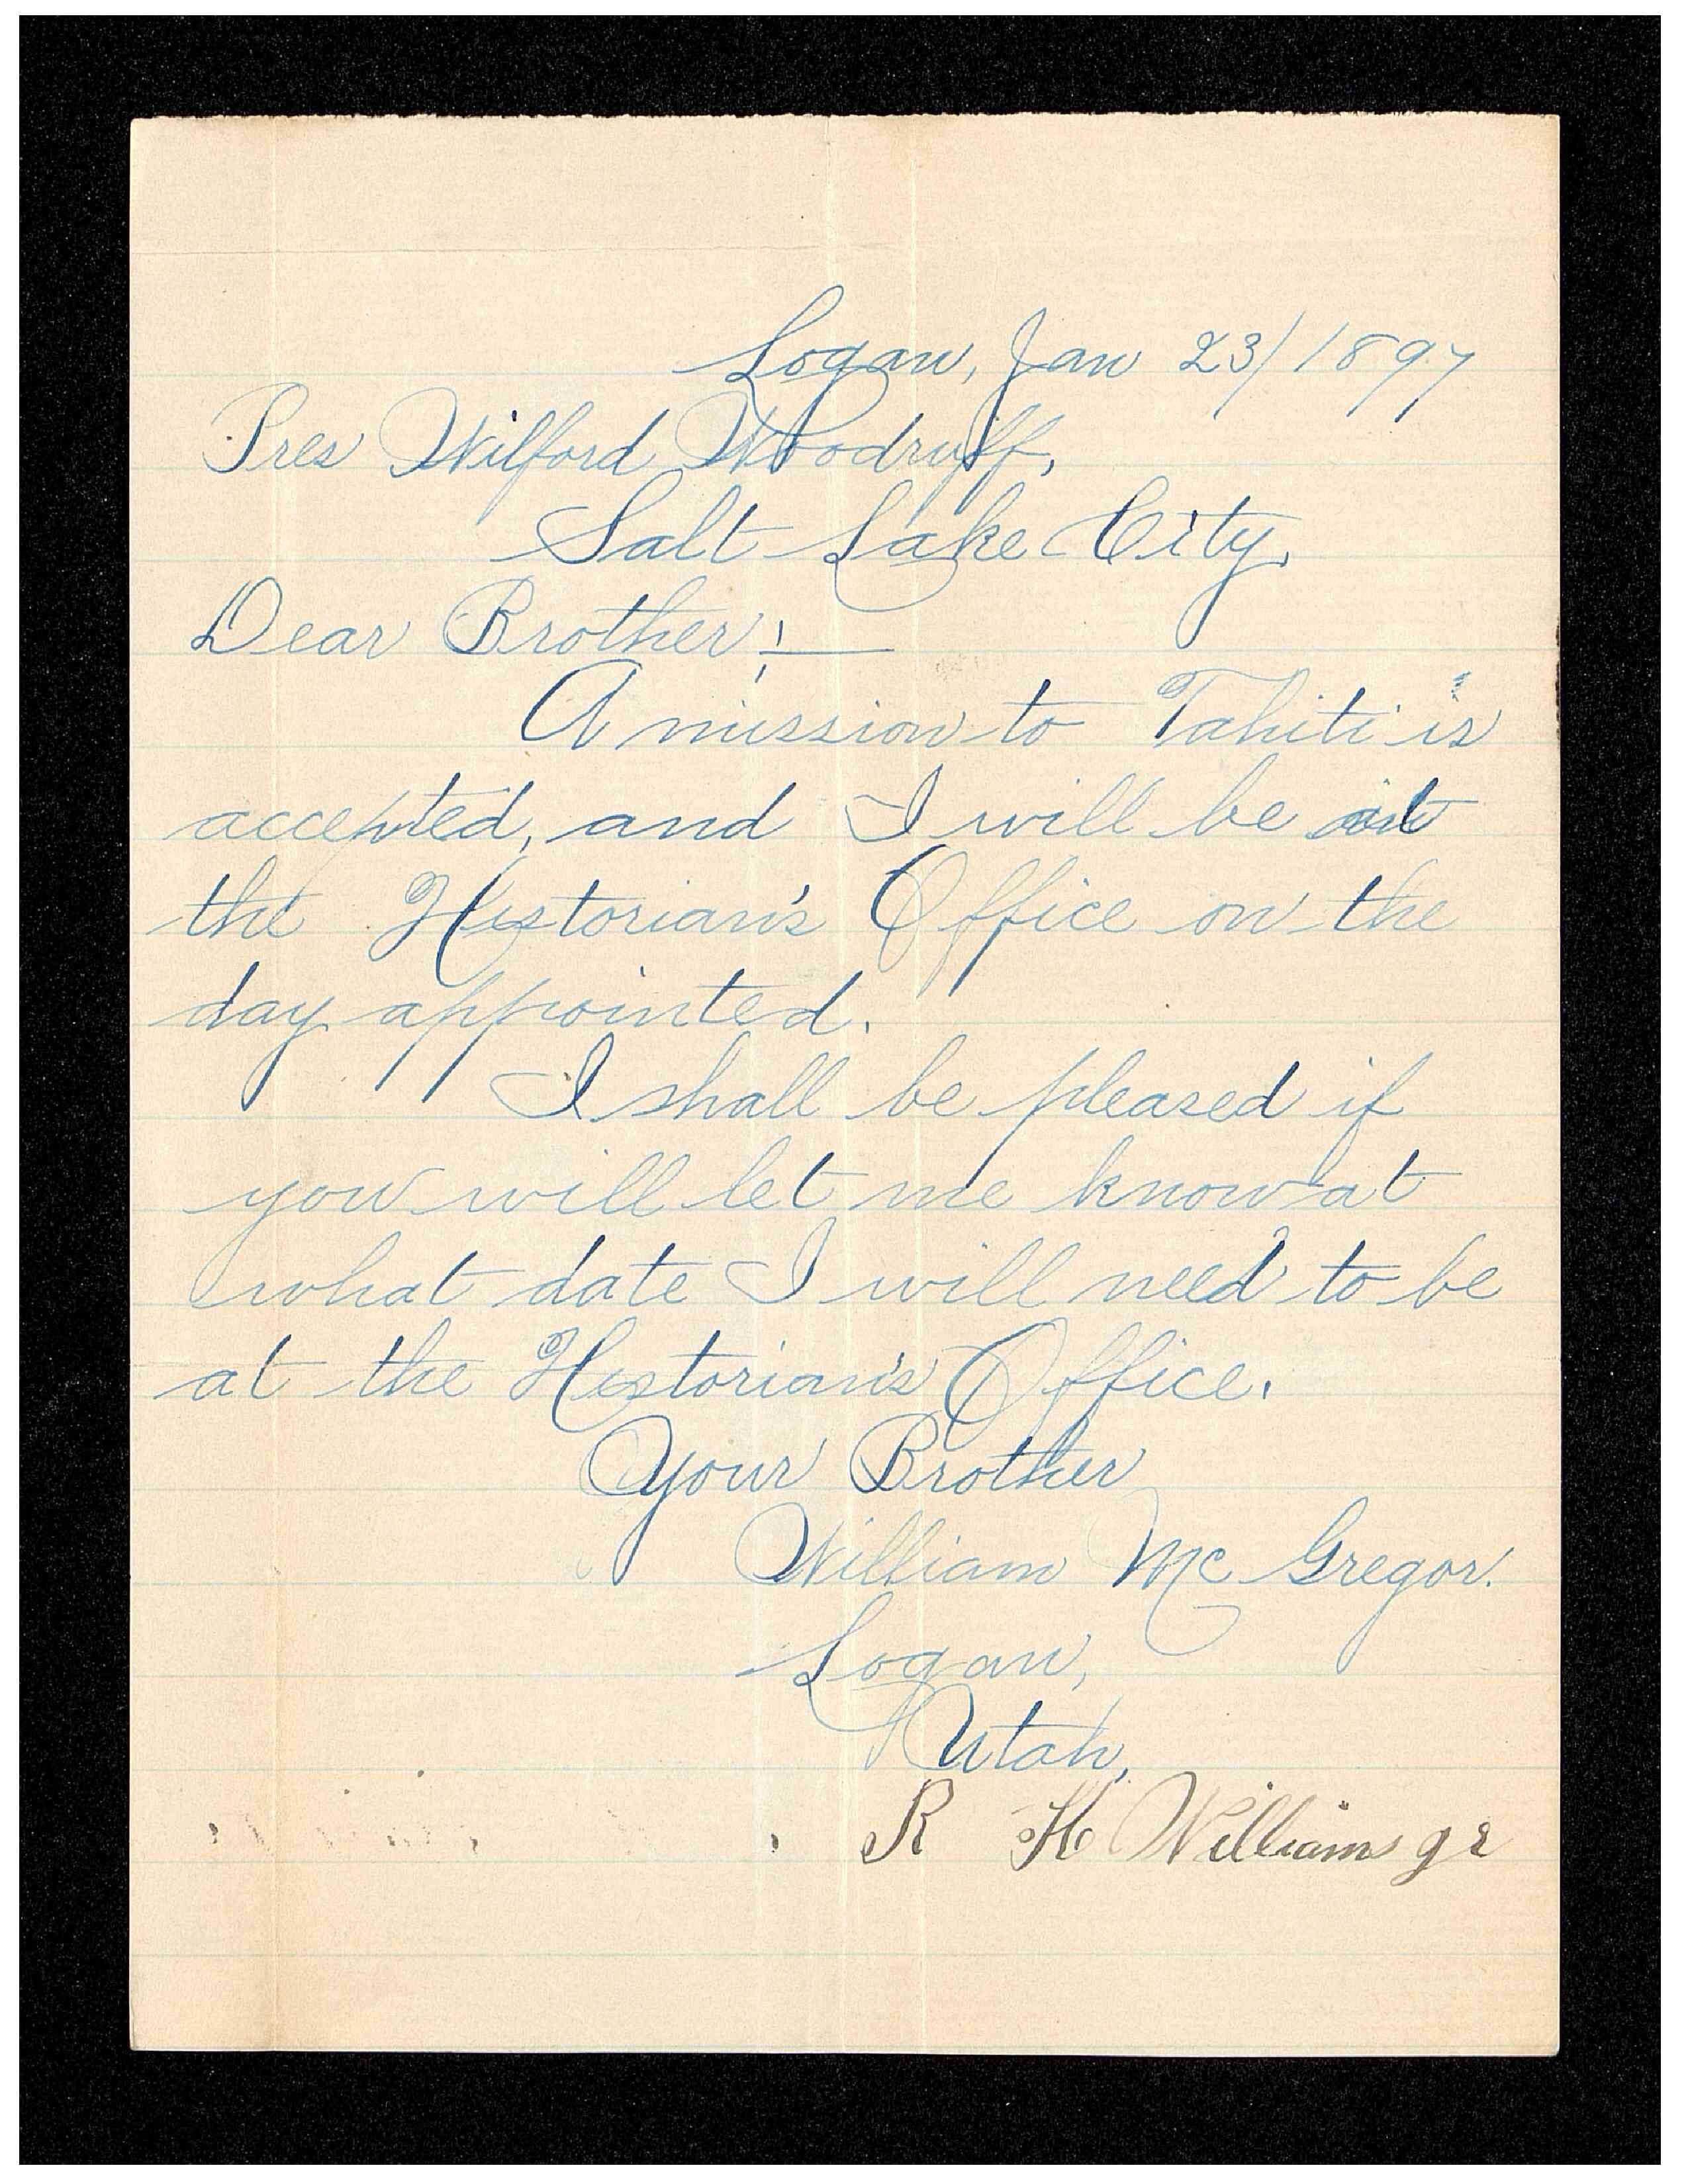 Logan, Jan 23/1897
Pres Wilford Woodruff,
Salt Lake City,
Dear Brother:—
A mission to Tahiti is
accepted, and I will be at
the Historian's Office on the
day appointed.
I shall be pleased if
you will let me know at
what date I will need to be
at the Historian's Office.
Your Brother
William McGregor.
Logan,
Utah,
R H Williams